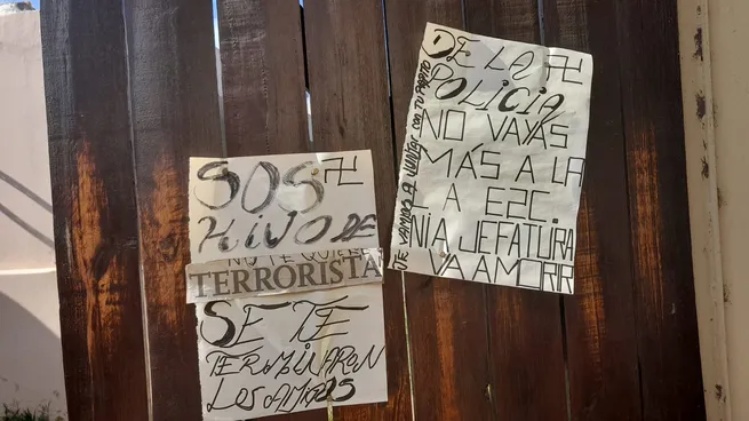 SOS
HIJO DE
NO TE QUIERE
TERRORISTA
SE TE
TERMINARON
LOS AMIGOS
DE LA
POLICIA
NO VAYAS
MÁS A LA
LA E2C.
NI A JEFATURA
VA A MORR
TE VAMOS A JUNTAR CON TU PAPITO